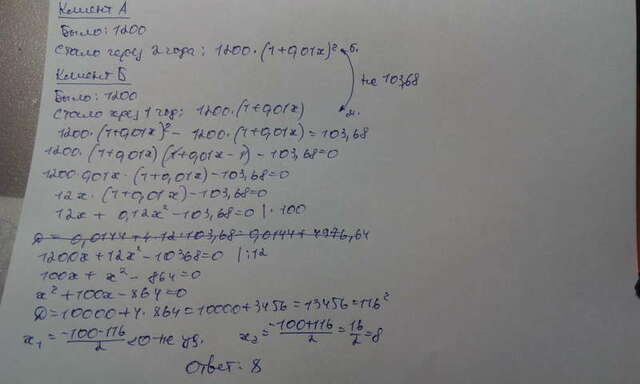 Клиент А
Было: 1200
Стало через 2 года: 1200·(1+0,01x)² б.
Клиент Б
на 103,68
Было: 1200
Стало через 1 год: 1200·(1+0,01x) м.
1200·(1+0,01x)² - 1200·(1+0,01x) = 103,68
1200·(1+0,01x)(1+0,01x-1) - 103,68=0
1200·0,01x·(1+0,01x)-103,68=0
12x·(1+0,01x)-103,68=0
12x + 0,12x²-103,68=0 |·100
D = 0,0144+4·12·103,68=0,0144+4976,64
1200x+12x²-10368=0 |:12
100x+x²-864=0
x²+100x-864=0
D=10000+4·864=10000+3456=13456=116²
x₁ = -100-116/2 <0-не уд. x₂ = -100+116/2 = 16/2 = 8
Ответ: 8